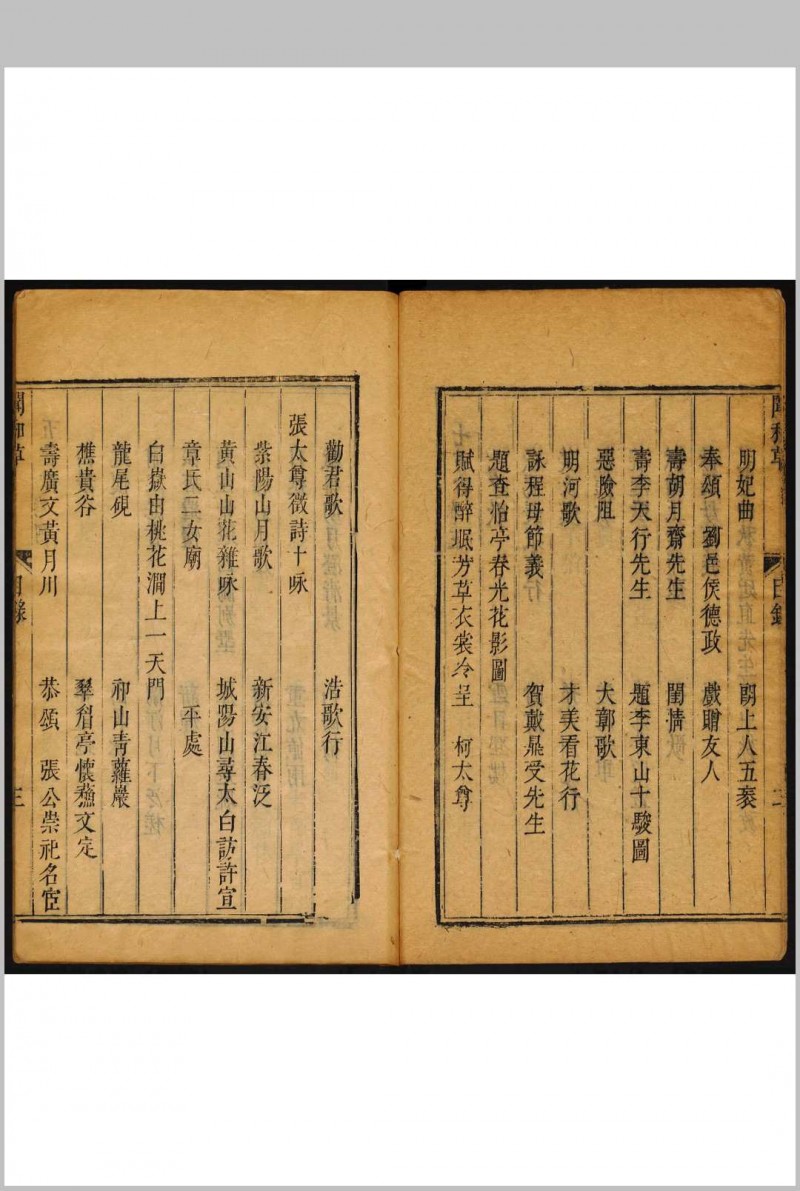 明妃曲　朗上人五袠
奉頌　劉邑侯德政　戲贈友人
壽胡月齋先生　閨情
壽李天行先生　題李東山十駿圖
惡險阻　大鄣歌
明河歌　才美看花行
詠程母節義行　賀戴鳧受先生
題查怡亭春光花影圖
賦得醉眠芳草衣裳冷呈　柯太尊
目錄
二
勸君歌　浩歌行
張太尊徵詩十咏
紫陽山月歌　新安江春泛
黃山山花雜咏　城陽山尋太白訪許宣平處
章氏二女廟
白嶽由桃花澗上一天門
龍尾硯　祁山青蘿巖
樵貴谷　翠稭亭懷蘓文定
壽廣文黃月川　恭頌　張公崇祀名宦
目錄
三